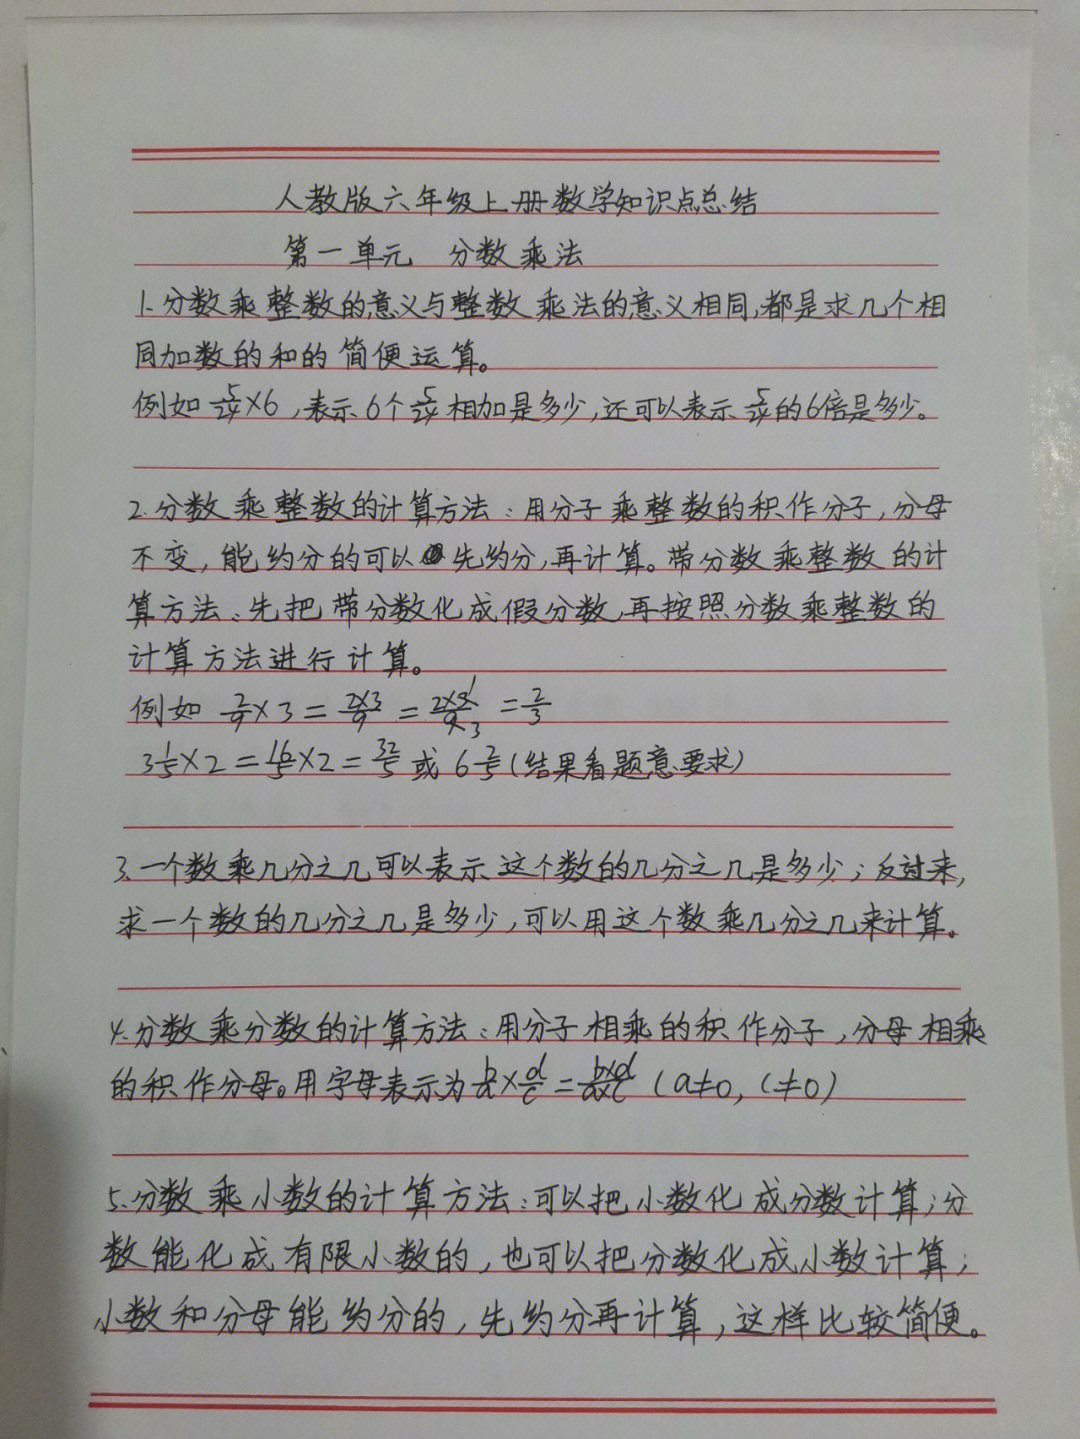 人教版六年级上册数学知识点总结
第一单元 分数乘法
1.分数乘整数的意义与整数乘法的意义相同,都是求几个相
同加数的和的简便运算。
例如 ×6,表示6个 相加是多少,还可以表示 的6倍是多少。
2.分数乘整数的计算方法:用分子乘整数的积作分子,分母
不变,能约分的可以先约分,再计算。带分数乘整数的计
算方法:先把带分数化成假分数,再按照分数乘整数的
计算方法进行计算。
例如 2/9×3=2×3/9=2×3 1/9 3=2/3
3 1/5×2=16/5×2=32/5或6 2/5(结果看题意要求)
3.一个数乘几分之几可以表示这个数的几分之几是多少;反过来,
求一个数的几分之几是多少,可以用这个数乘几分之几来计算。
4.分数乘分数的计算方法:用分子相乘的积作分子,分母相乘
的积作分母。用字母表示为b/a×d/c=b×d/a×c (a≠0, c≠0)
5.分数乘小数的计算方法:可以把小数化成分数计算;分
数能化成有限小数的,也可以把分数化成小数计算;
小数和分母能约分的,先约分再计算,这样比较简便。